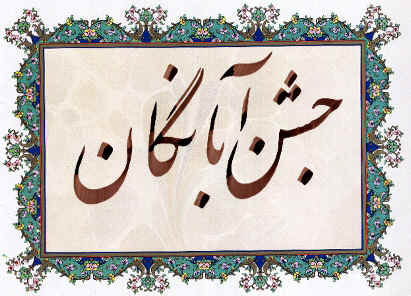 جشن آبانگان